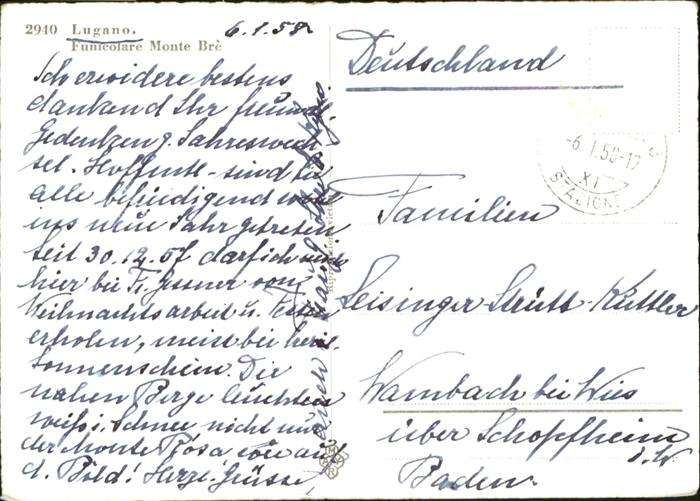 2940 Lugano.
Funicolare Monte Brè
6.1.58
Ich erwidere bestens
dankend Ihr freundl.
Gedenken z. Jahreswech-
sel. Hoffentl. sind Sie
alle befriedigend
ins neue Jahr getreten
Seit 30.12.57 darf ich
hier bei
Weihnachtsarbeit u.
erholen, meist bei
Sonnenschein. Die
nahen Berge leuchten
weiß i. Schnee nicht nur
der Monte Rosa wie auf
d. Bild! Herzl. Grüsse,
Deutschland
-6.1.58-17
XI
STAZIONE
Familien
Leisinger Strütt-Kuttler
Wambach bei Wies
über Schopfheim
i. W
Baden